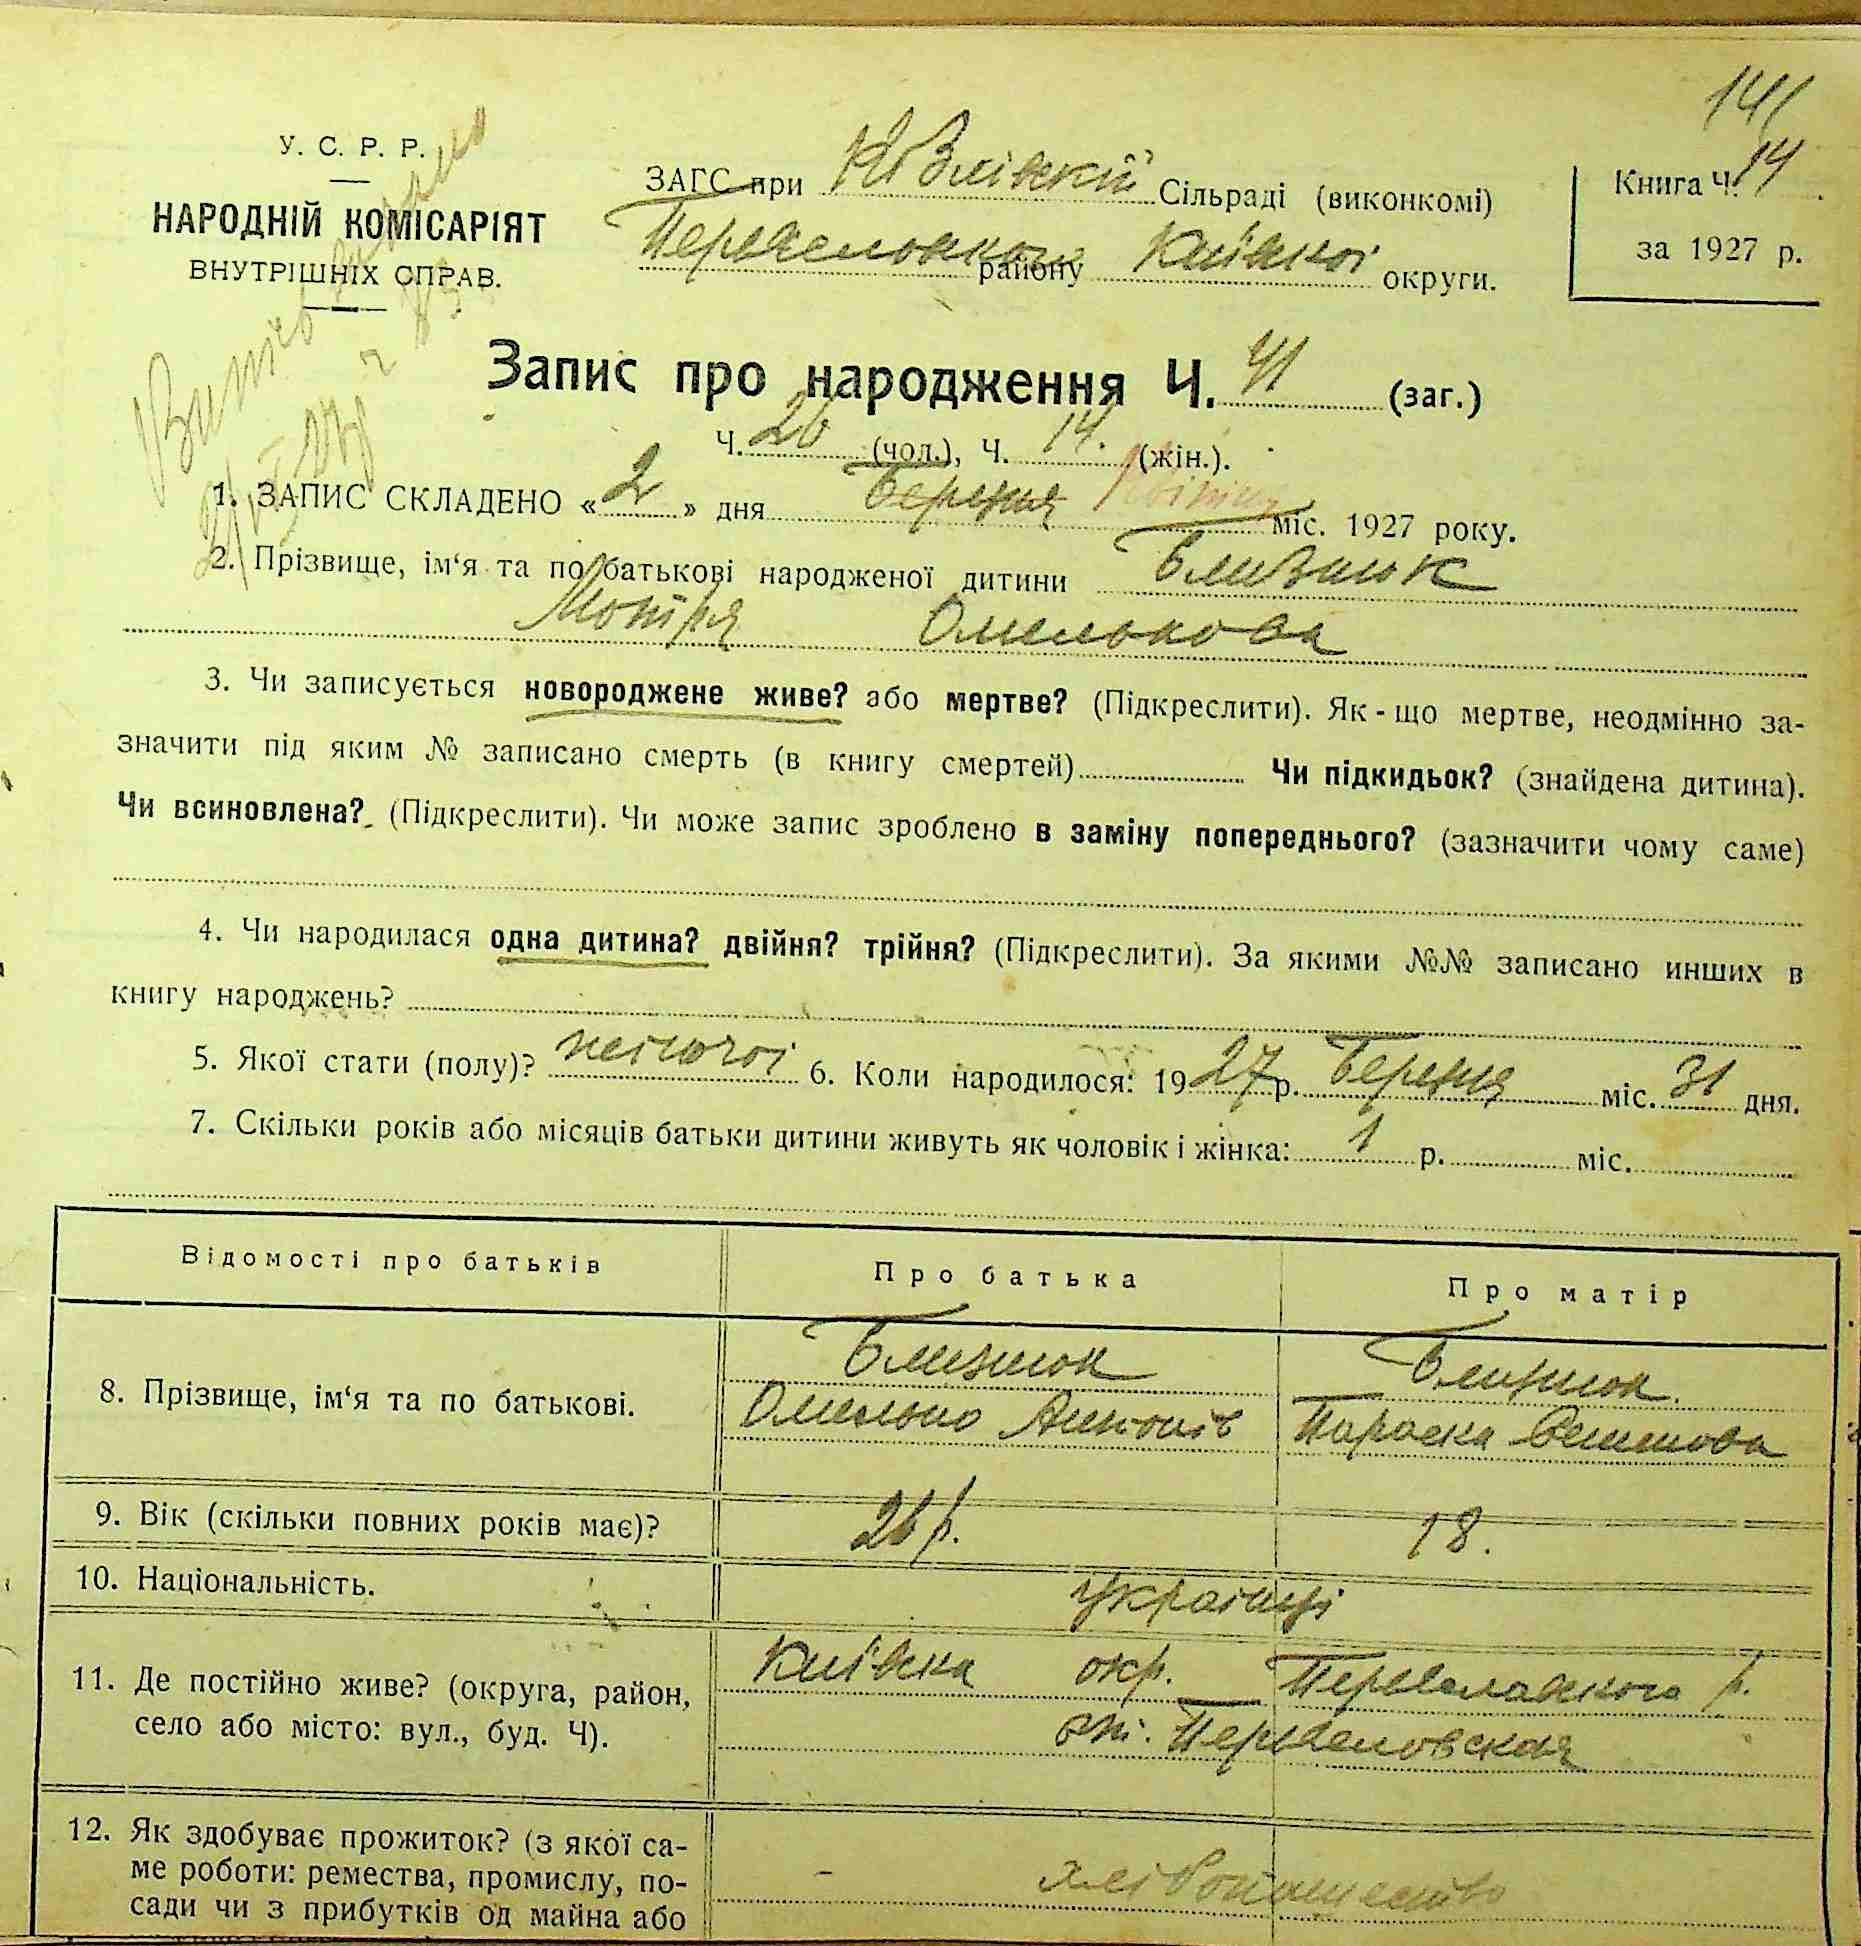 141
У. С. Р. Р.
НАРОДНІЙ КОМІСАРІЯТ
ВНУТРІШНІХ СПРАВ.
ЗАГС при Сільраді (виконкомі)
району Київської округи.
Книга Ч. 14
за 1927 р.
Запис про народження Ч. 41 (заг.)
Ч. 26 (чол.), Ч. 14. (жін.).
1. ЗАПИС СКЛАДЕНО « 2 » дня Березня Квітня міс. 1927 року.
2. Прізвище, ім'я та по батькові народженої дитини Близнюк
Мотря Омелькова
3. Чи записується новороджене живе? або мертве? (Підкреслити). Як-що мертве, неодмінно за-
значити під яким № записано смерть (в книгу смертей) Чи підкидьок? (знайдена дитина).
Чи всиновлена? (Підкреслити). Чи може запис зроблено в заміну попереднього? (зазначити чому саме)
4. Чи народилася одна дитина? двійня? трійня? (Підкреслити). За якими №№ записано инших в
книгу народжень?
5. Якої стати (полу)? жіночоі 6. Коли народилося: 1927 р. Березня міс. 31 дня.
7. Скільки років або місяців батьки дитини живуть як чоловік і жінка: 1 р. міс.
Відомості про батьків Про батька Про матір
8. Прізвище, ім'я та по батькові. Близнюк Близнюк.
Омелько Антонів Параска Семенова
9. Вік (скільки повних років має)? 26 р. 18.
10. Національність. украінці
11. Де постійно живе? (округа, район, Киівска окр. р.
село або місто: вул., буд. Ч).
12. Як здобуває прожиток? (з якої са- -
ме роботи: ремества, промислу, по- хлібопашество
сади чи з прибутків од майна або